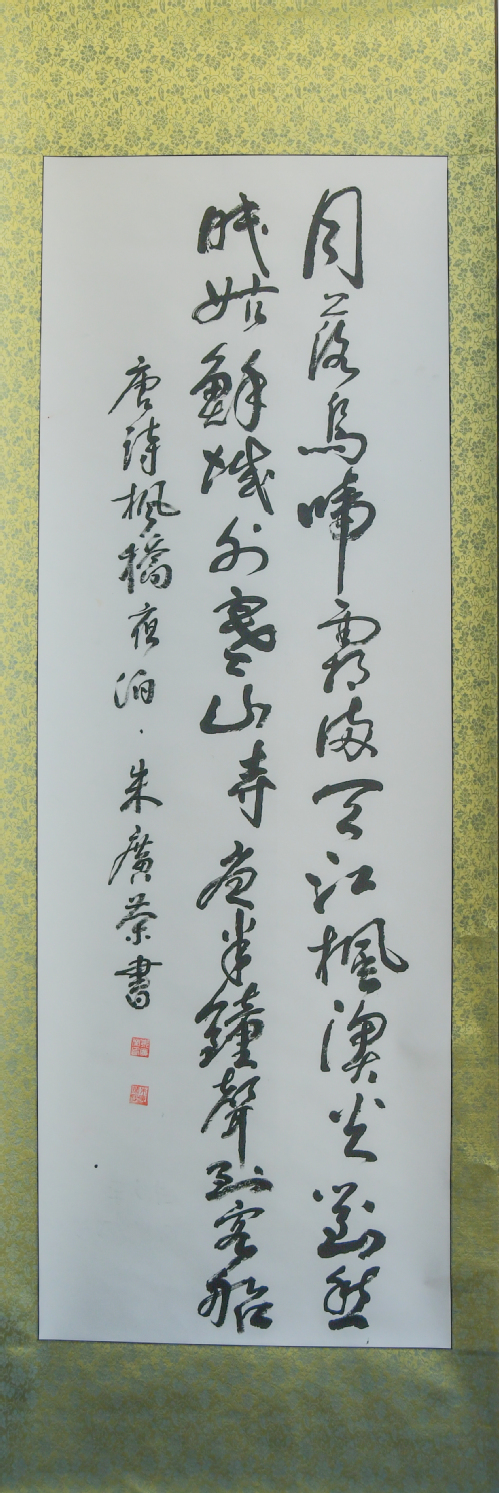 月落烏啼霜滿天江楓漁火對愁
眠姑蘇城外寒山寺夜半鐘聲到客船
唐詩楓橋夜泊·朱廣榮書